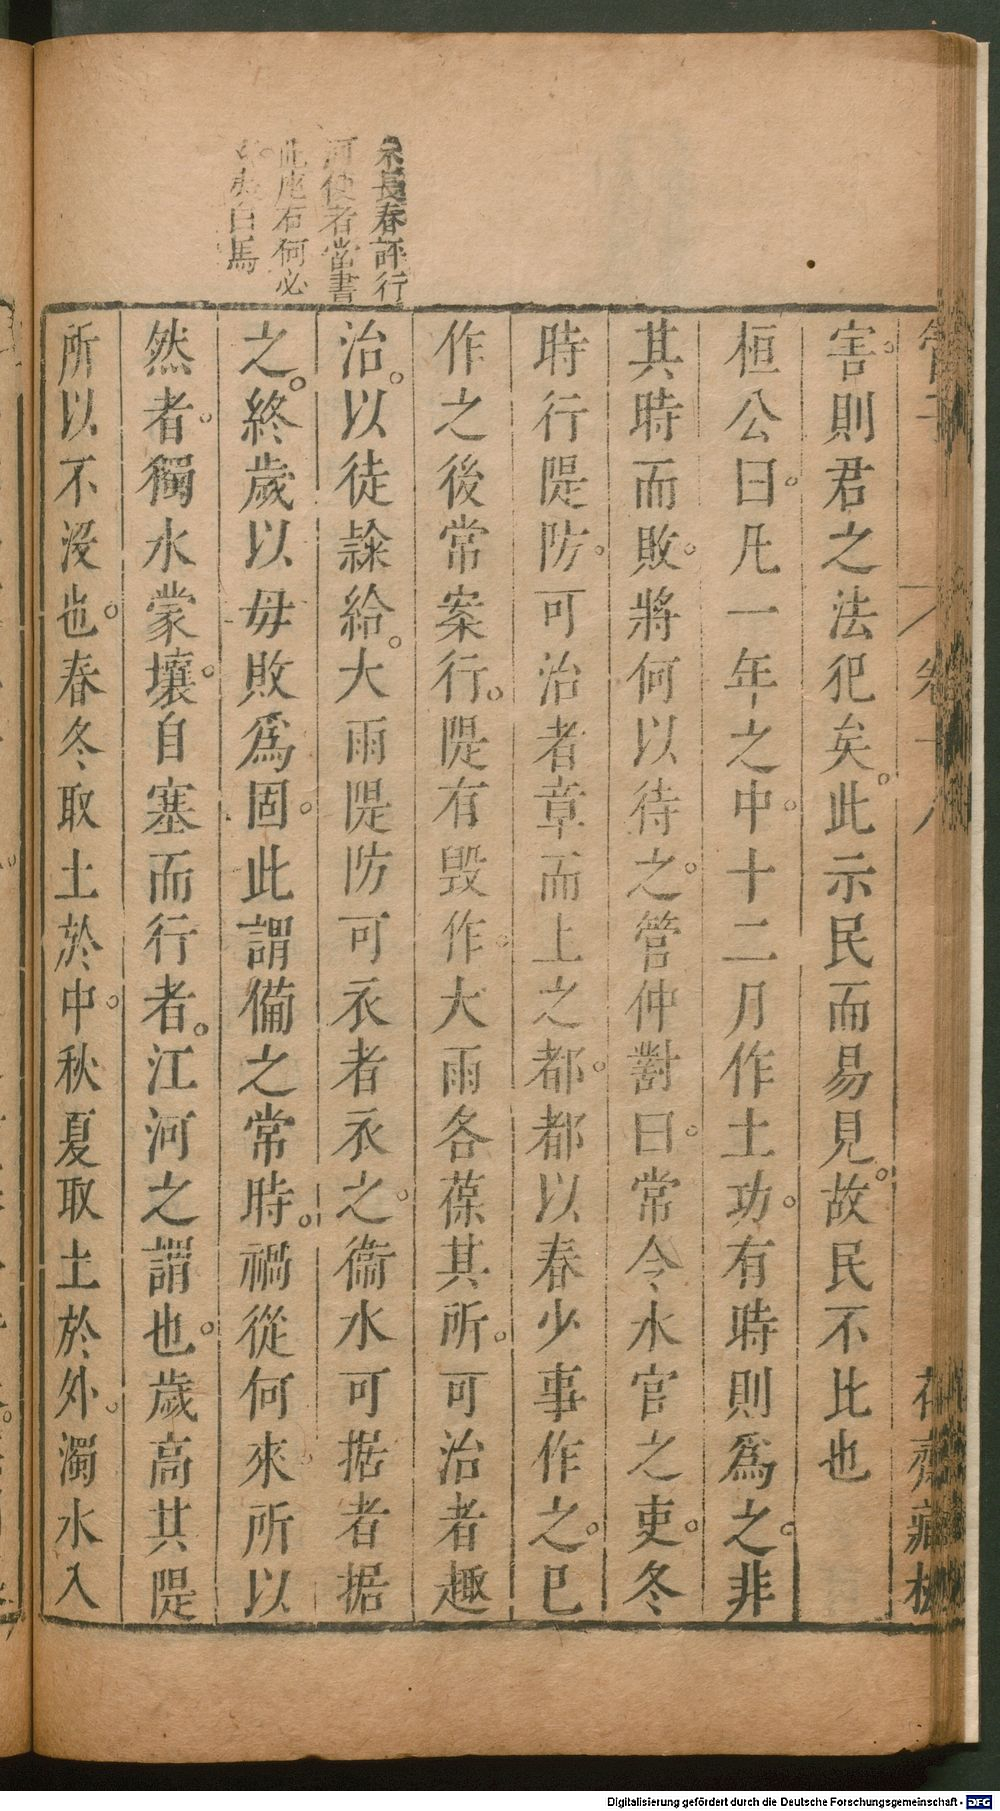 朱長春評行
河使者當書
此座右何必
沈白馬
管子
卷十八
花齋藏板
害則君之法犯矣此示民而易見故民不比也
桓公曰凡一年之中十二月作土功有時則爲之非
其時而敗將何以待之管仲對曰常令水官之吏冬
時行隄防可治者章而上之都都以春少事作之已
作之後常案行隄有毀作大雨各葆其所可治者趣
治以徒隸給大雨隄防可衣者衣之衝水可据者据
之終歲以毋敗爲固此謂備之常時禍從何來所以
然者獨水蒙壤自塞而行者江河之謂也歲高其隄
所以不沒也春冬取土於中秋夏取土於外濁水入
Digitalisierung gefördert durch die Deutsche Forschungsgemeinschaft - DFG